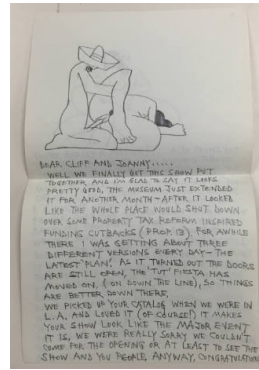 DEAR CLIFF AND JOANNY.....
WELL WE FINALLY GOT THIS SHOW PUT
TOGETHER, AND I'M GLAD TO SAY IT LOOKS
PRETTY GOOD. THE MUSEUM JUST EXTENDED
IT FOR ANOTHER MONTH - AFTER IT LOOKED
LIKE THE WHOLE PLACE WOULD SHUT DOWN
OVER SOME PROPERTY TAX REFORM INSPIRED
FUNDING CUTBACKS (PROP. 13). FOR AWHILE
THERE I WAS GETTING ABOUT THREE
DIFFERENT VERSIONS EVERY DAY - THE
LATEST 'PLAN'. AS IT TURNED OUT THE DOORS
ARE STILL OPEN, THE 'TUT' FIESTA HAS
MOVED ON, (ON DOWN THE LINE), SO THINGS
ARE BETTER DOWN THERE,
WE PICKED UP YOUR CATALOG WHEN WE WERE IN
L.A. AND LOVED IT (OF COURSE!) IT MAKES
YOUR SHOW LOOK LIKE THE MAJOR EVENT
IT IS, WE WERE REALLY SORRY WE COULDN'T
COME FOR THE OPENING OR AT LEAST TO SEE THE
SHOW AND YOU PEOPLE, ANYWAY, CONGRATULATIONS